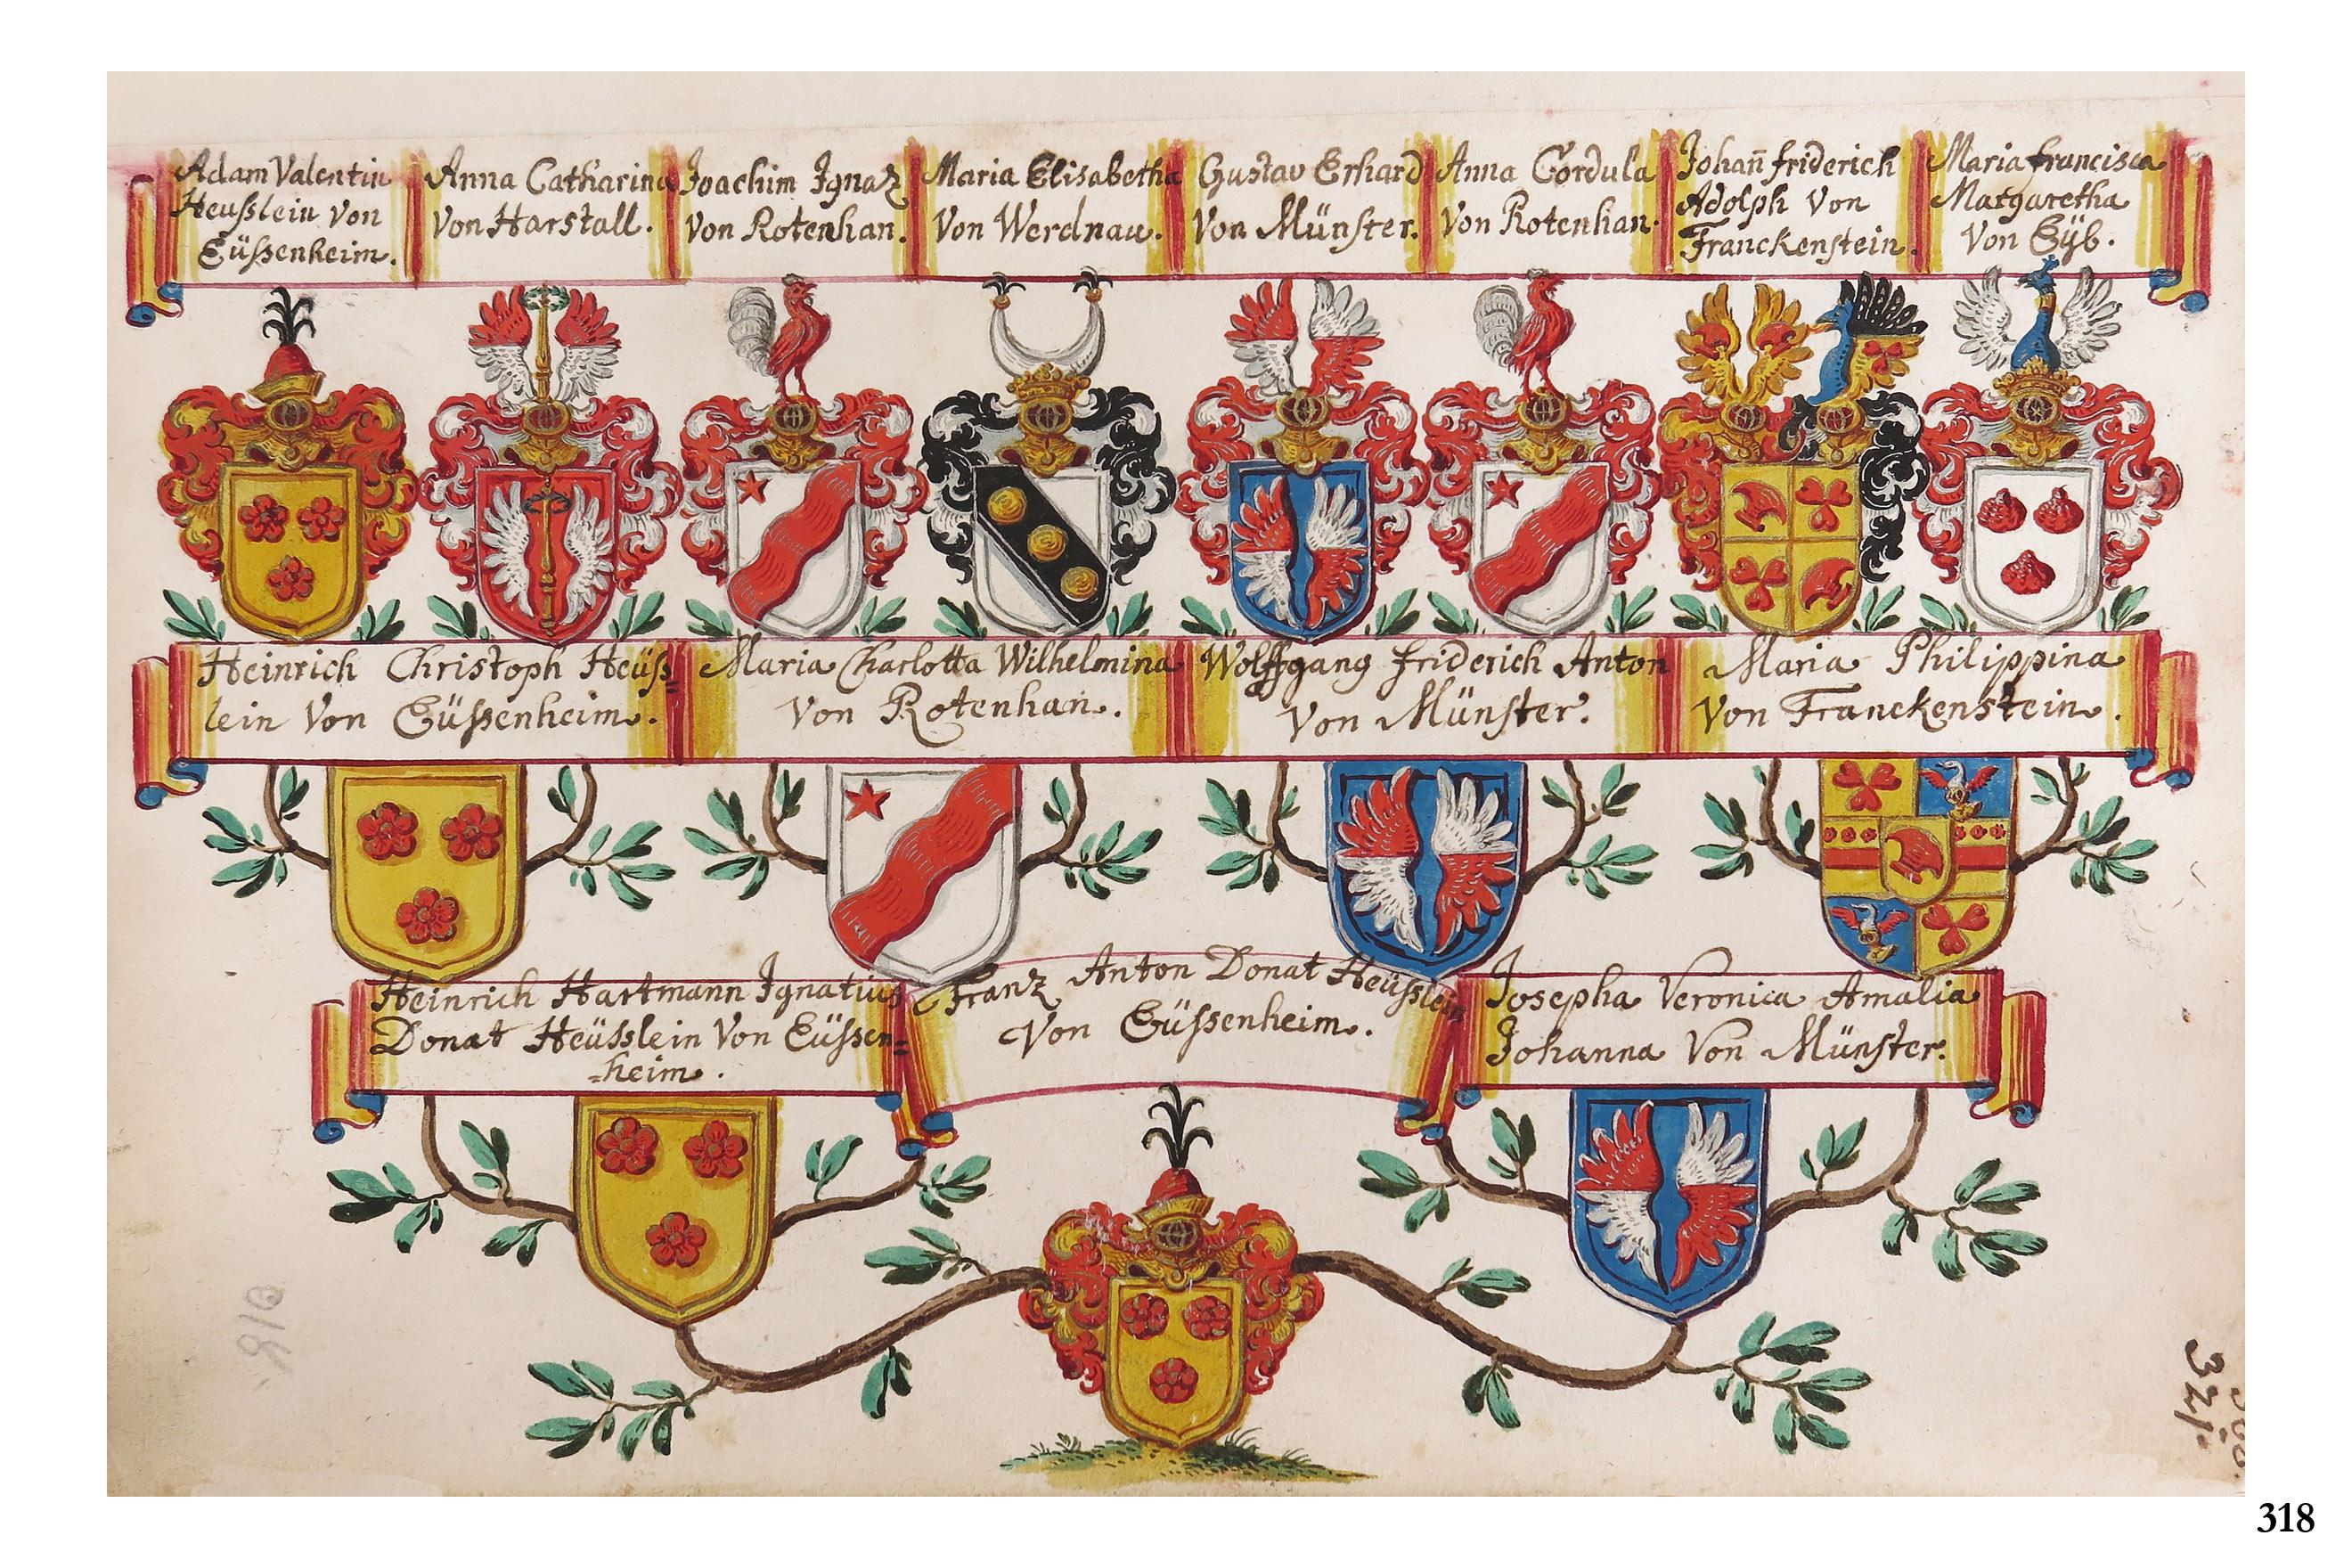 Adam Valentin
Heusslein von
Eüssenheim.
Anna Catharina
von Harstall.
Joachim Ignaz
von Rotenhan.
Maria Elisabetha
Von Werdnau.
Gustav Erhard
Von Münster.
Anna Cordula
Von Rotenhan.
Johan̄ friderich
Adolph Von
Franckenstein.
Maria francisca
Margaretha
Von Eÿb.
Heinrich Christoph Heüss=
lein Von Eüssenheim.
Maria Charlotta Wilhelmina
Von Rotenhan.
Wolffgang friderich Anton
Von Münster.
Maria Philippina
Von Franckenstein.
Heinrich Hartmann Ignatius
Donat Heüsslein Von Eüssen=
=heim.
Franz Anton Donat Heüsslein
Von Eüssenheim.
Josepha Veronica Amalia
Johanna Von Münster.
321.
318